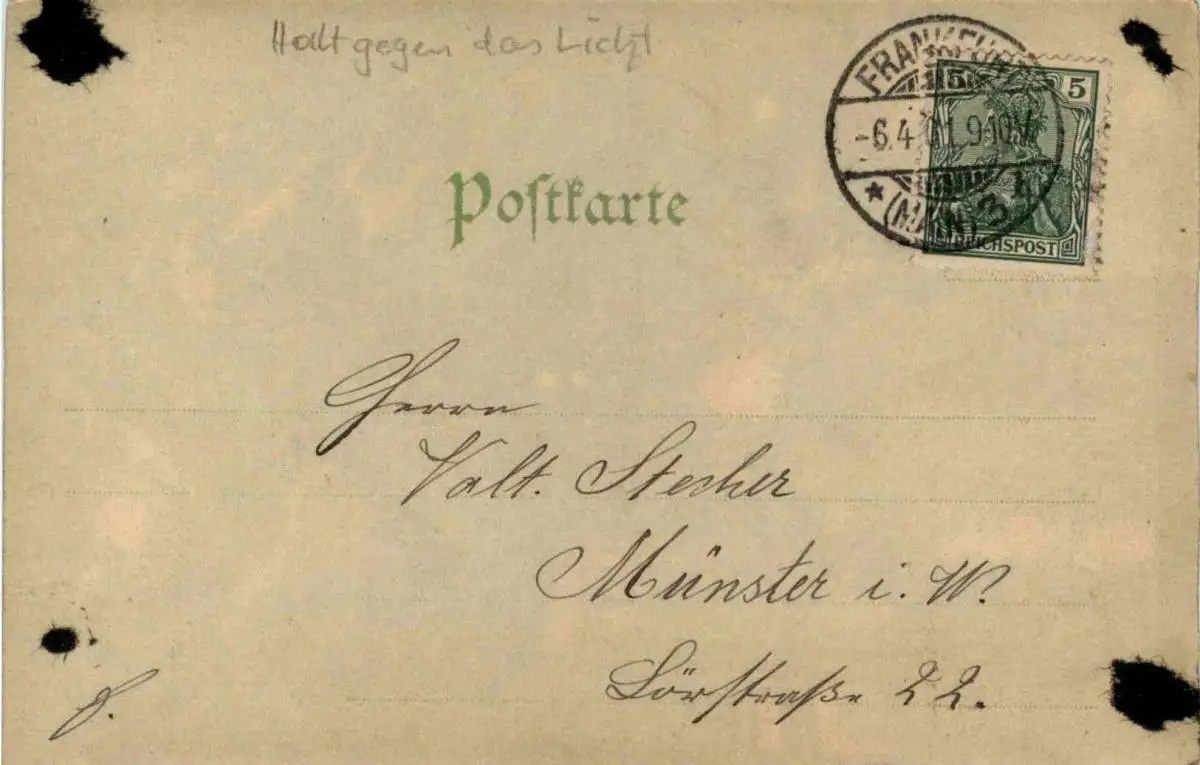 Halt gegen das Licht
FRANKFURT
-6.4.01.9-10V.
★ (MAIN) 3
5 5
REICHSPOST
Postkarte
Herrn
Valt. Stecher
Münster i. W.
Lörstraße 22.